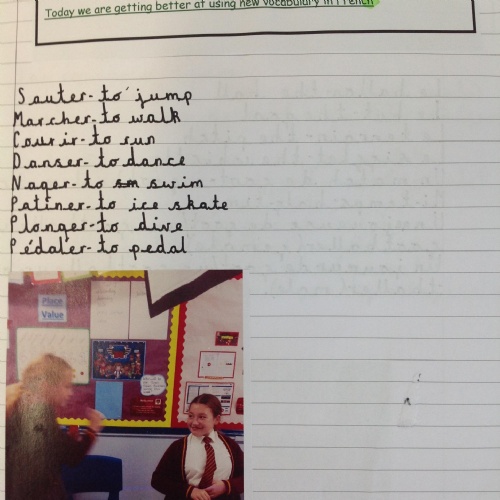 Today we are getting better at using new vocabulary in French
Sauter- to jump
Marcher- to walk
Courir- to run
Danser- to dance
Nager- to sm swim
Patiner- to ice skate
Plonger- to dive
Pédaler- to pedal
Place
Value